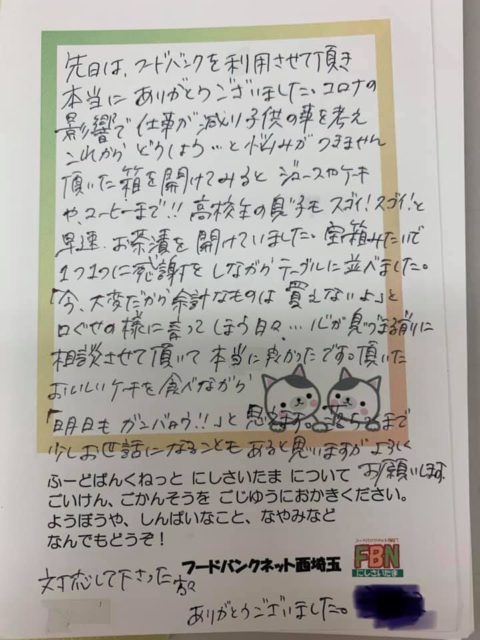 先日は、フードバンクを利用させて頂き
本当に ありがとうございました。コロナの
影響で仕事が減り子供の事を考え
これから どうしよう…と悩みがつきません
頂いた箱を開けてみると ジュースやケーキ
や、コーヒーまで!! 高校生の息子も スゴイ!スゴイ!と
早速、お茶漬を開けていました。宝箱みたいで
1つ1つに感謝をしながらテーブルに並べました。
「今、大変だから余計なものは 買えないよ」と
口ぐせの様に言ってしまう日々…心が つまる前に
相談させて頂いて 本当に良かったです。頂いた
おいしいケーキを食べながら
「明日も ガンバロウ!!」と 思えます。 まで
少しお世話になることも あると思いますが よろしく
お願いします。
ふーどばんくねっと にしさいたま について
ごいけん、ごかんそうを ごじゆうにおかきください。
ようぼうや、しんぱいなこと、なやみなど
なんでもどうぞ!
フードバンクネット西埼玉
FBN
にしさいたま
対応して下さった方々
ありがとうございました。